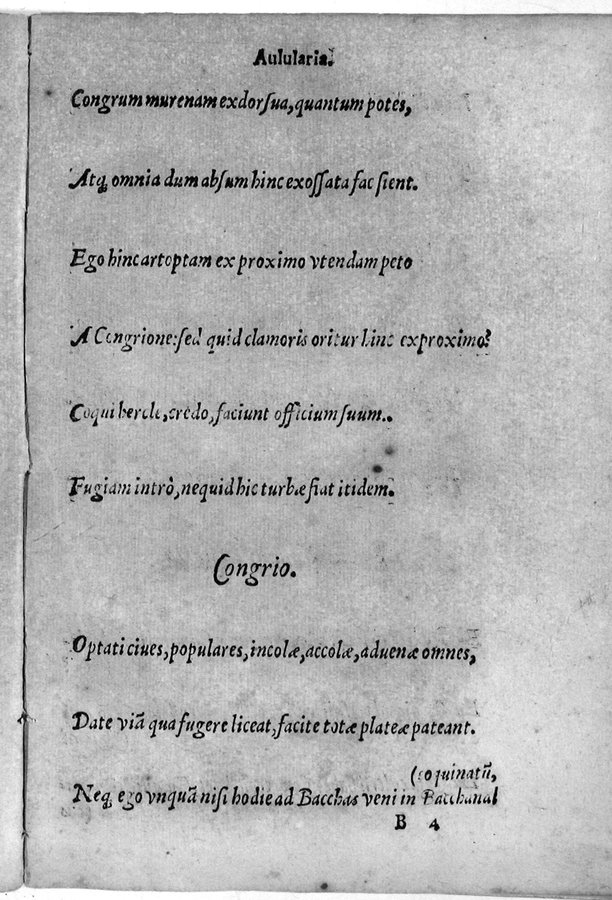 Aulularia.
Congrum murenam exdorſua, quantum potes,
Atq; omnia dum abſum hinc exoſſata fac ſient.
Ego hinc artoptam ex proximo vtendam peto
A Congrione: ſed quid clamoris oritur hinc exproximo?
Coqui hercle, credo, faciunt officium ſuum..
Fugiam intrò, nequid hic turbæ fiat itidem.
Congrio.
Optati ciues, populares, incolæ, accolæ, aduenæ omnes,
Date viã qua fugere liceat, facite totæ plateæ pateant.
(coquinatũ,
Neq; ego vnquã niſi hodie ad Bacchas veni in Bacchanal
B 4